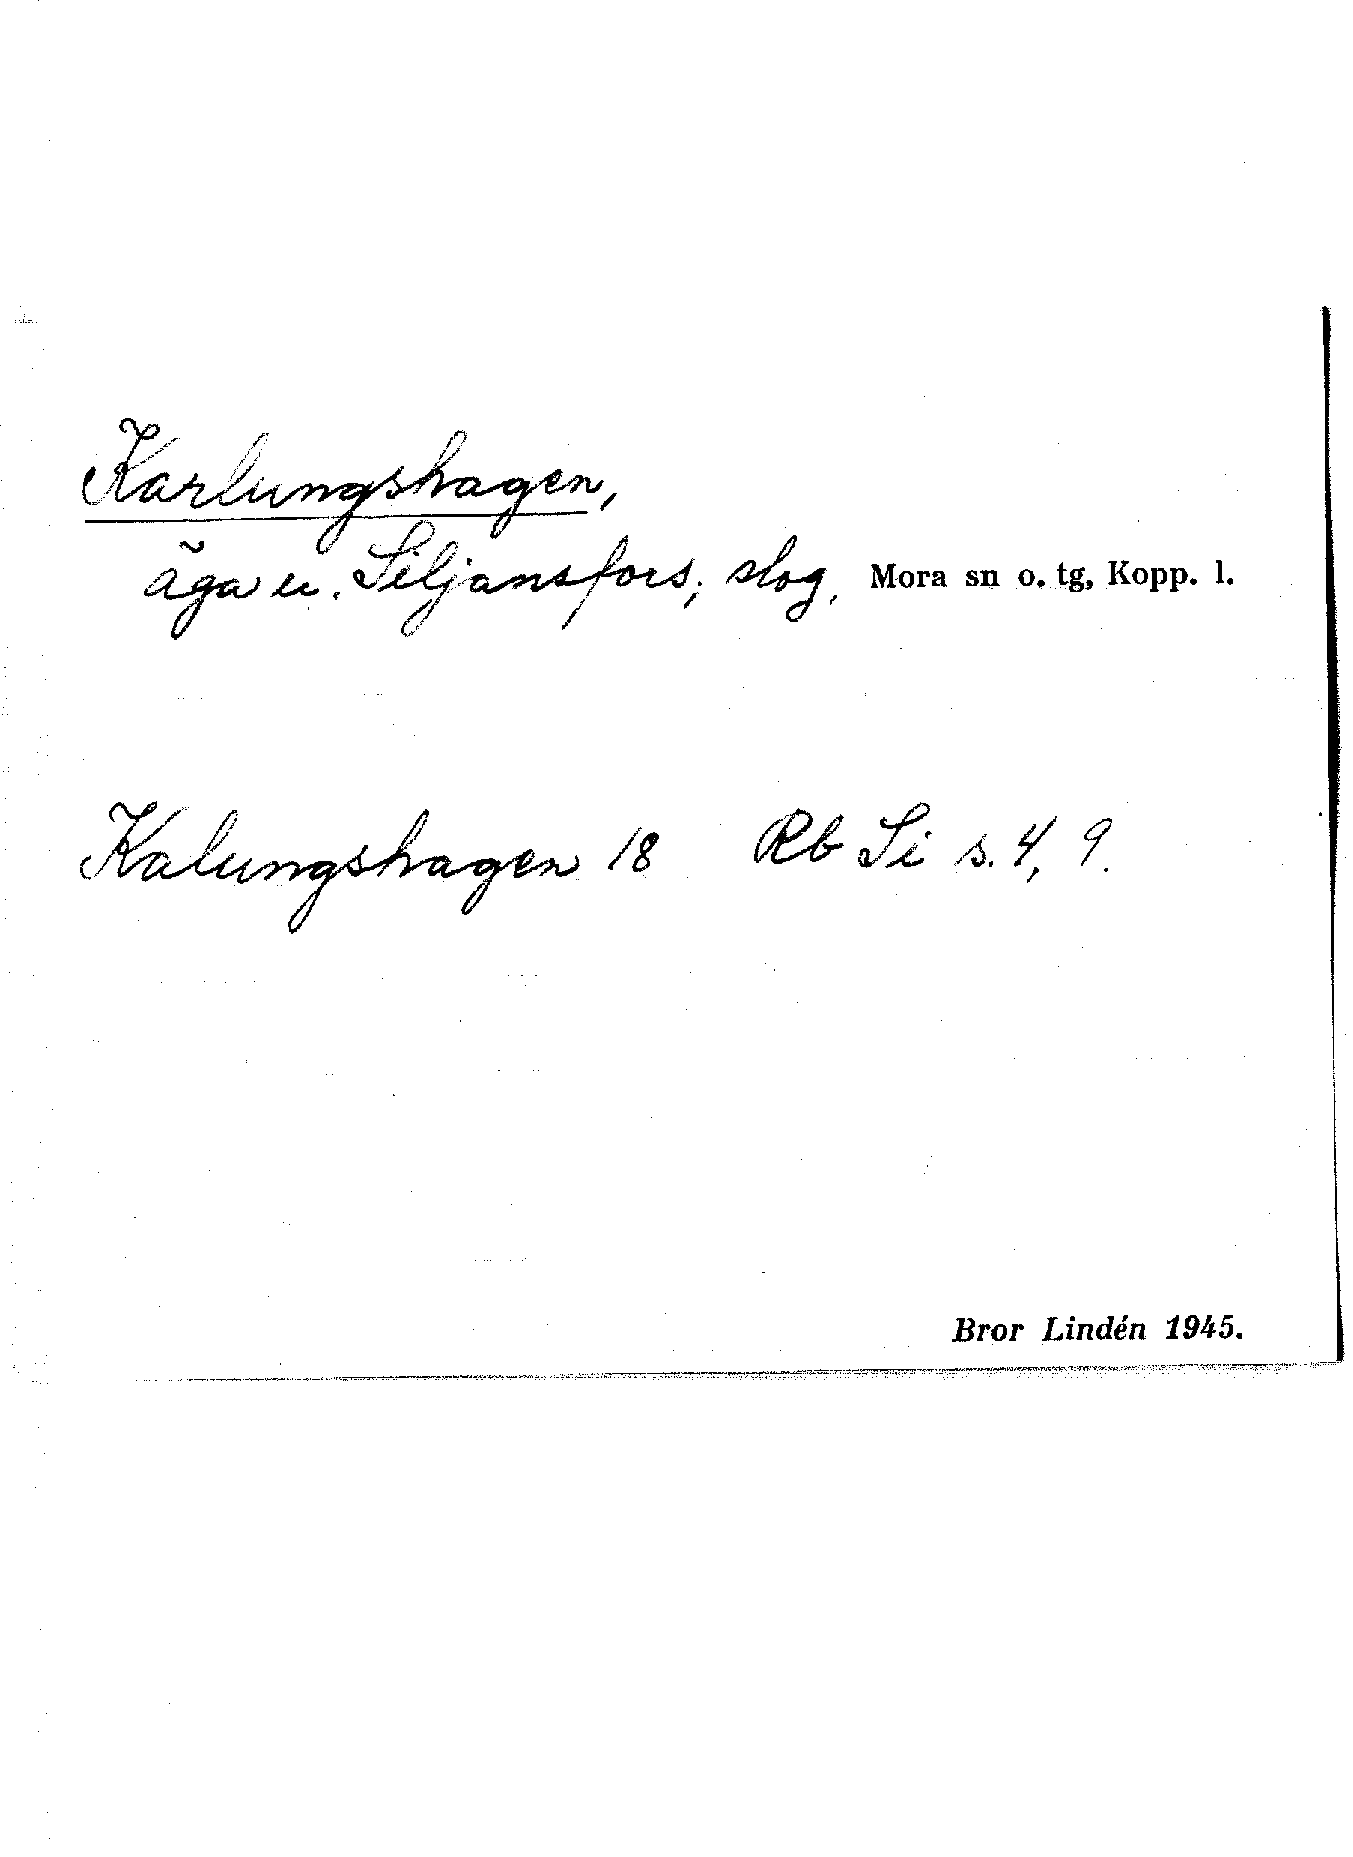 Karlungshagen,
äga u. Siljansfors; slog, Mora sn o. tg, Kopp. l.
Kalungshagen 18 Rb Si s. 4, 9.
Bror Lindén 1945.